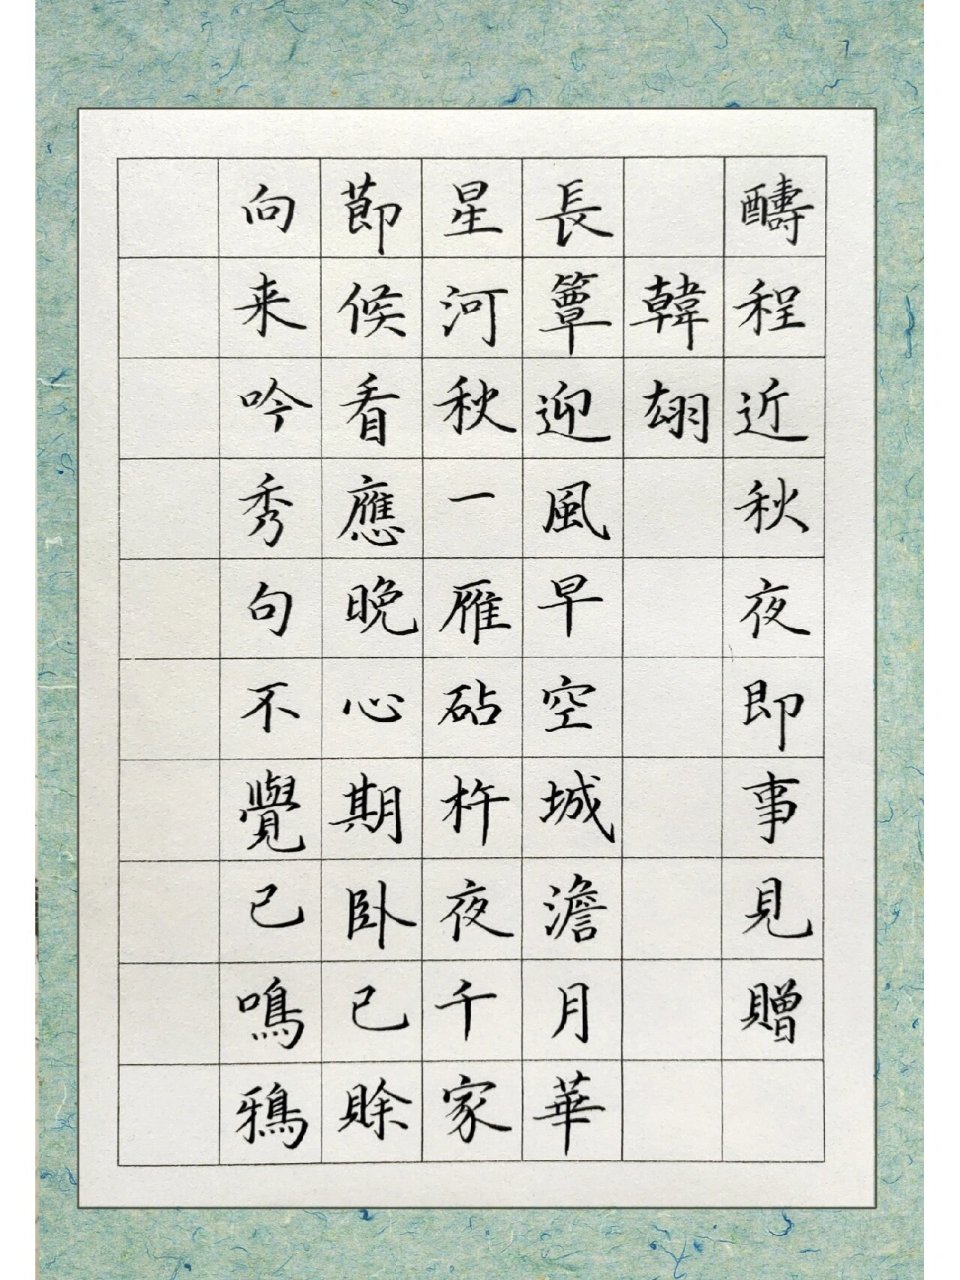 醻程近秋夜即事見贈
韓翃
長簟迎風早空城澹月華
星河秋一雁砧杵夜千家
莭候看應晚心期卧已賖
向来吟秀句不覺已鳴鴉